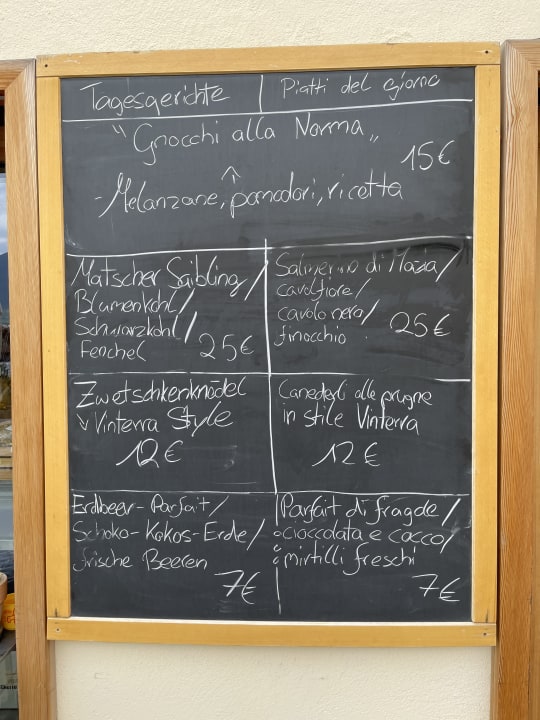 Tagesgerichte | Piatti del giorno
"Gnocchi alla Norma"
15€
- Melanzane, pomodori, ricotta
Matscher Saibling/
Blumenkohl/
Schwarzkohl/
Fenchel 25€
Salmerino di Mazia/
cavolfiore/
cavolo nero/
finocchio 25€
Zwetschkenknödel
Vinterra Style
12€
Canederli alle prugne
in stile Vinterra
12€
Erdbeer-Parfait/
Schoko-Kokos-Erde/
frische Beeren
7€
Parfait di fragole/
cioccolata e cocco/
mirtilli freschi
7€